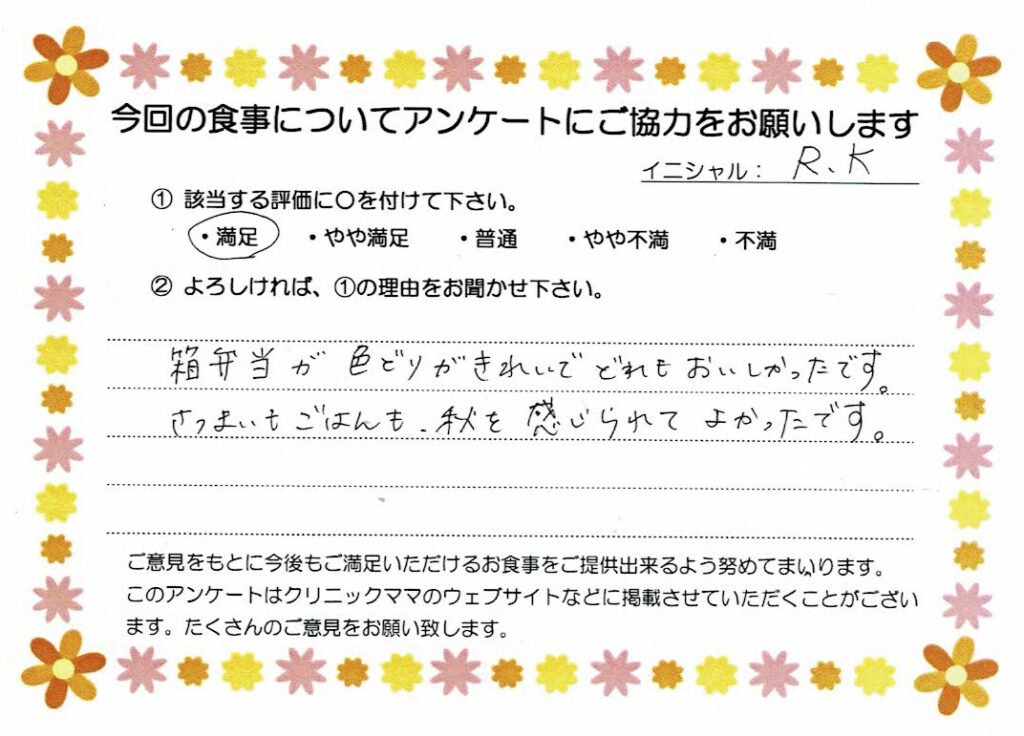 今回の食事についてアンケートにご協力をお願いします
イニシャル： R.K
① 該当する評価に〇を付けて下さい。
・満足 ・やや満足 ・普通 ・やや不満 ・不満
② よろしければ、①の理由をお聞かせ下さい。
箱弁当が色どりがきれいでどれもおいしかったです。
さつまいもごはんも、秋を感じられてよかったです。
ご意見をもとに今後もご満足いただけるお食事をご提供出来るよう努めてまいります。
このアンケートはクリニックママのウェブサイトなどに掲載させていただくことがござい
ます。たくさんのご意見をお願い致します。